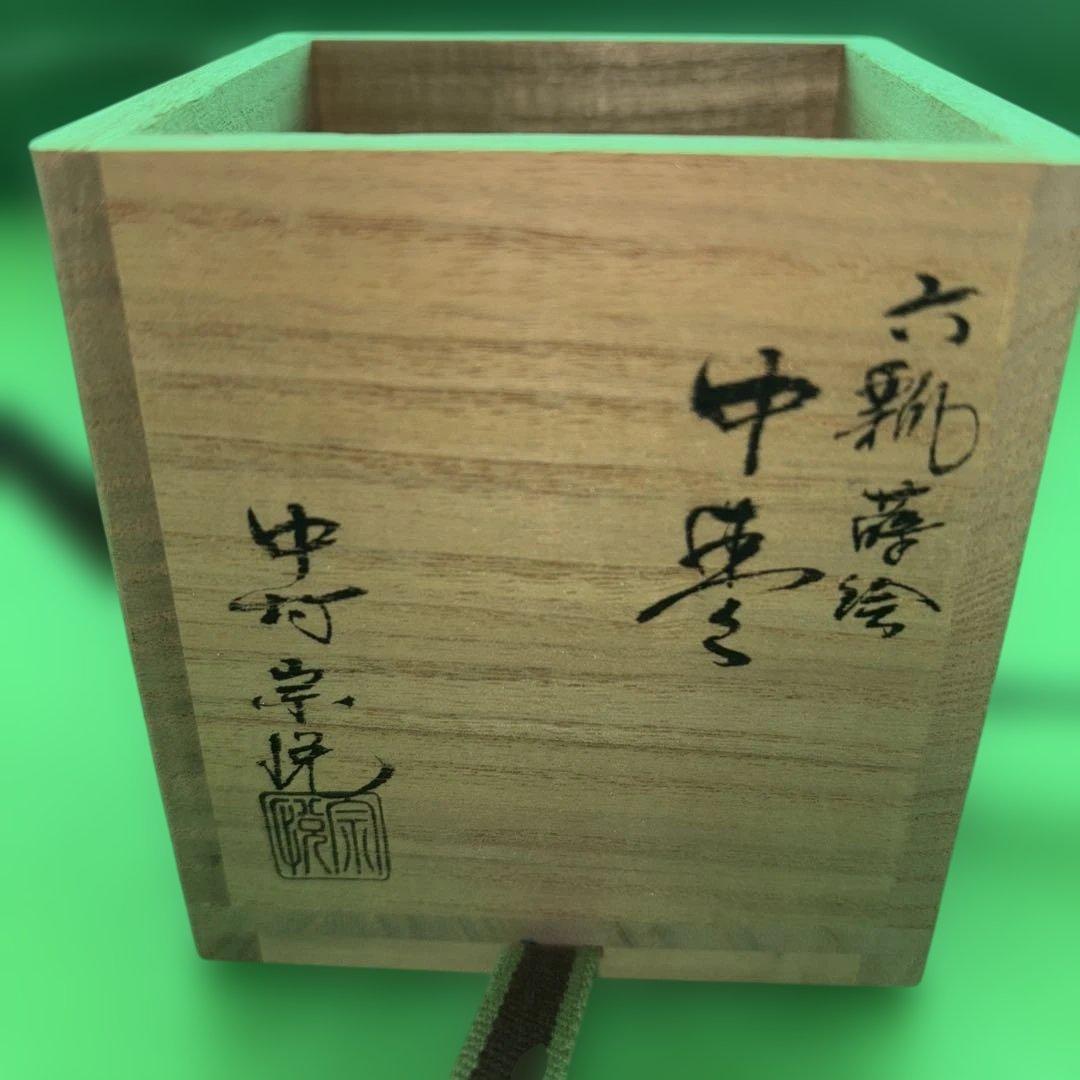 六瓢蒔絵
中棗
中村宗悦
宗悦